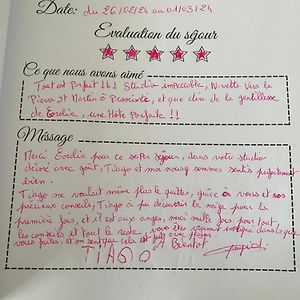 Date: du 26/02/24 au 01/03/24
Evaluation du séjour
Ce que nous avons aimé
Tout est Parfait !!! Studio impeccable, Navette vers la
Pierre St Martin à Proximité, et que dire de la gentillesse
de Coralie, une Hôte Parfaite !!
Message
Merci Coralie pour ce super séjour, dans votre studio
décoré avec goût, Tiago et moi nous sommes sentis parfaitement
bien.
Tiago ne voulait même plus le quitter, grâce à vous et nos
précieux conseils, Tiago à pu découvrir la neige pour la
première fois, et il est aux anges, merci mille fois pour tout,
les conseils et tout le reste, vous êtes vraiment unique dans ce que
vous faites, et on sent que cela est fait avec plaisir.
A Bientôt
TIAGO